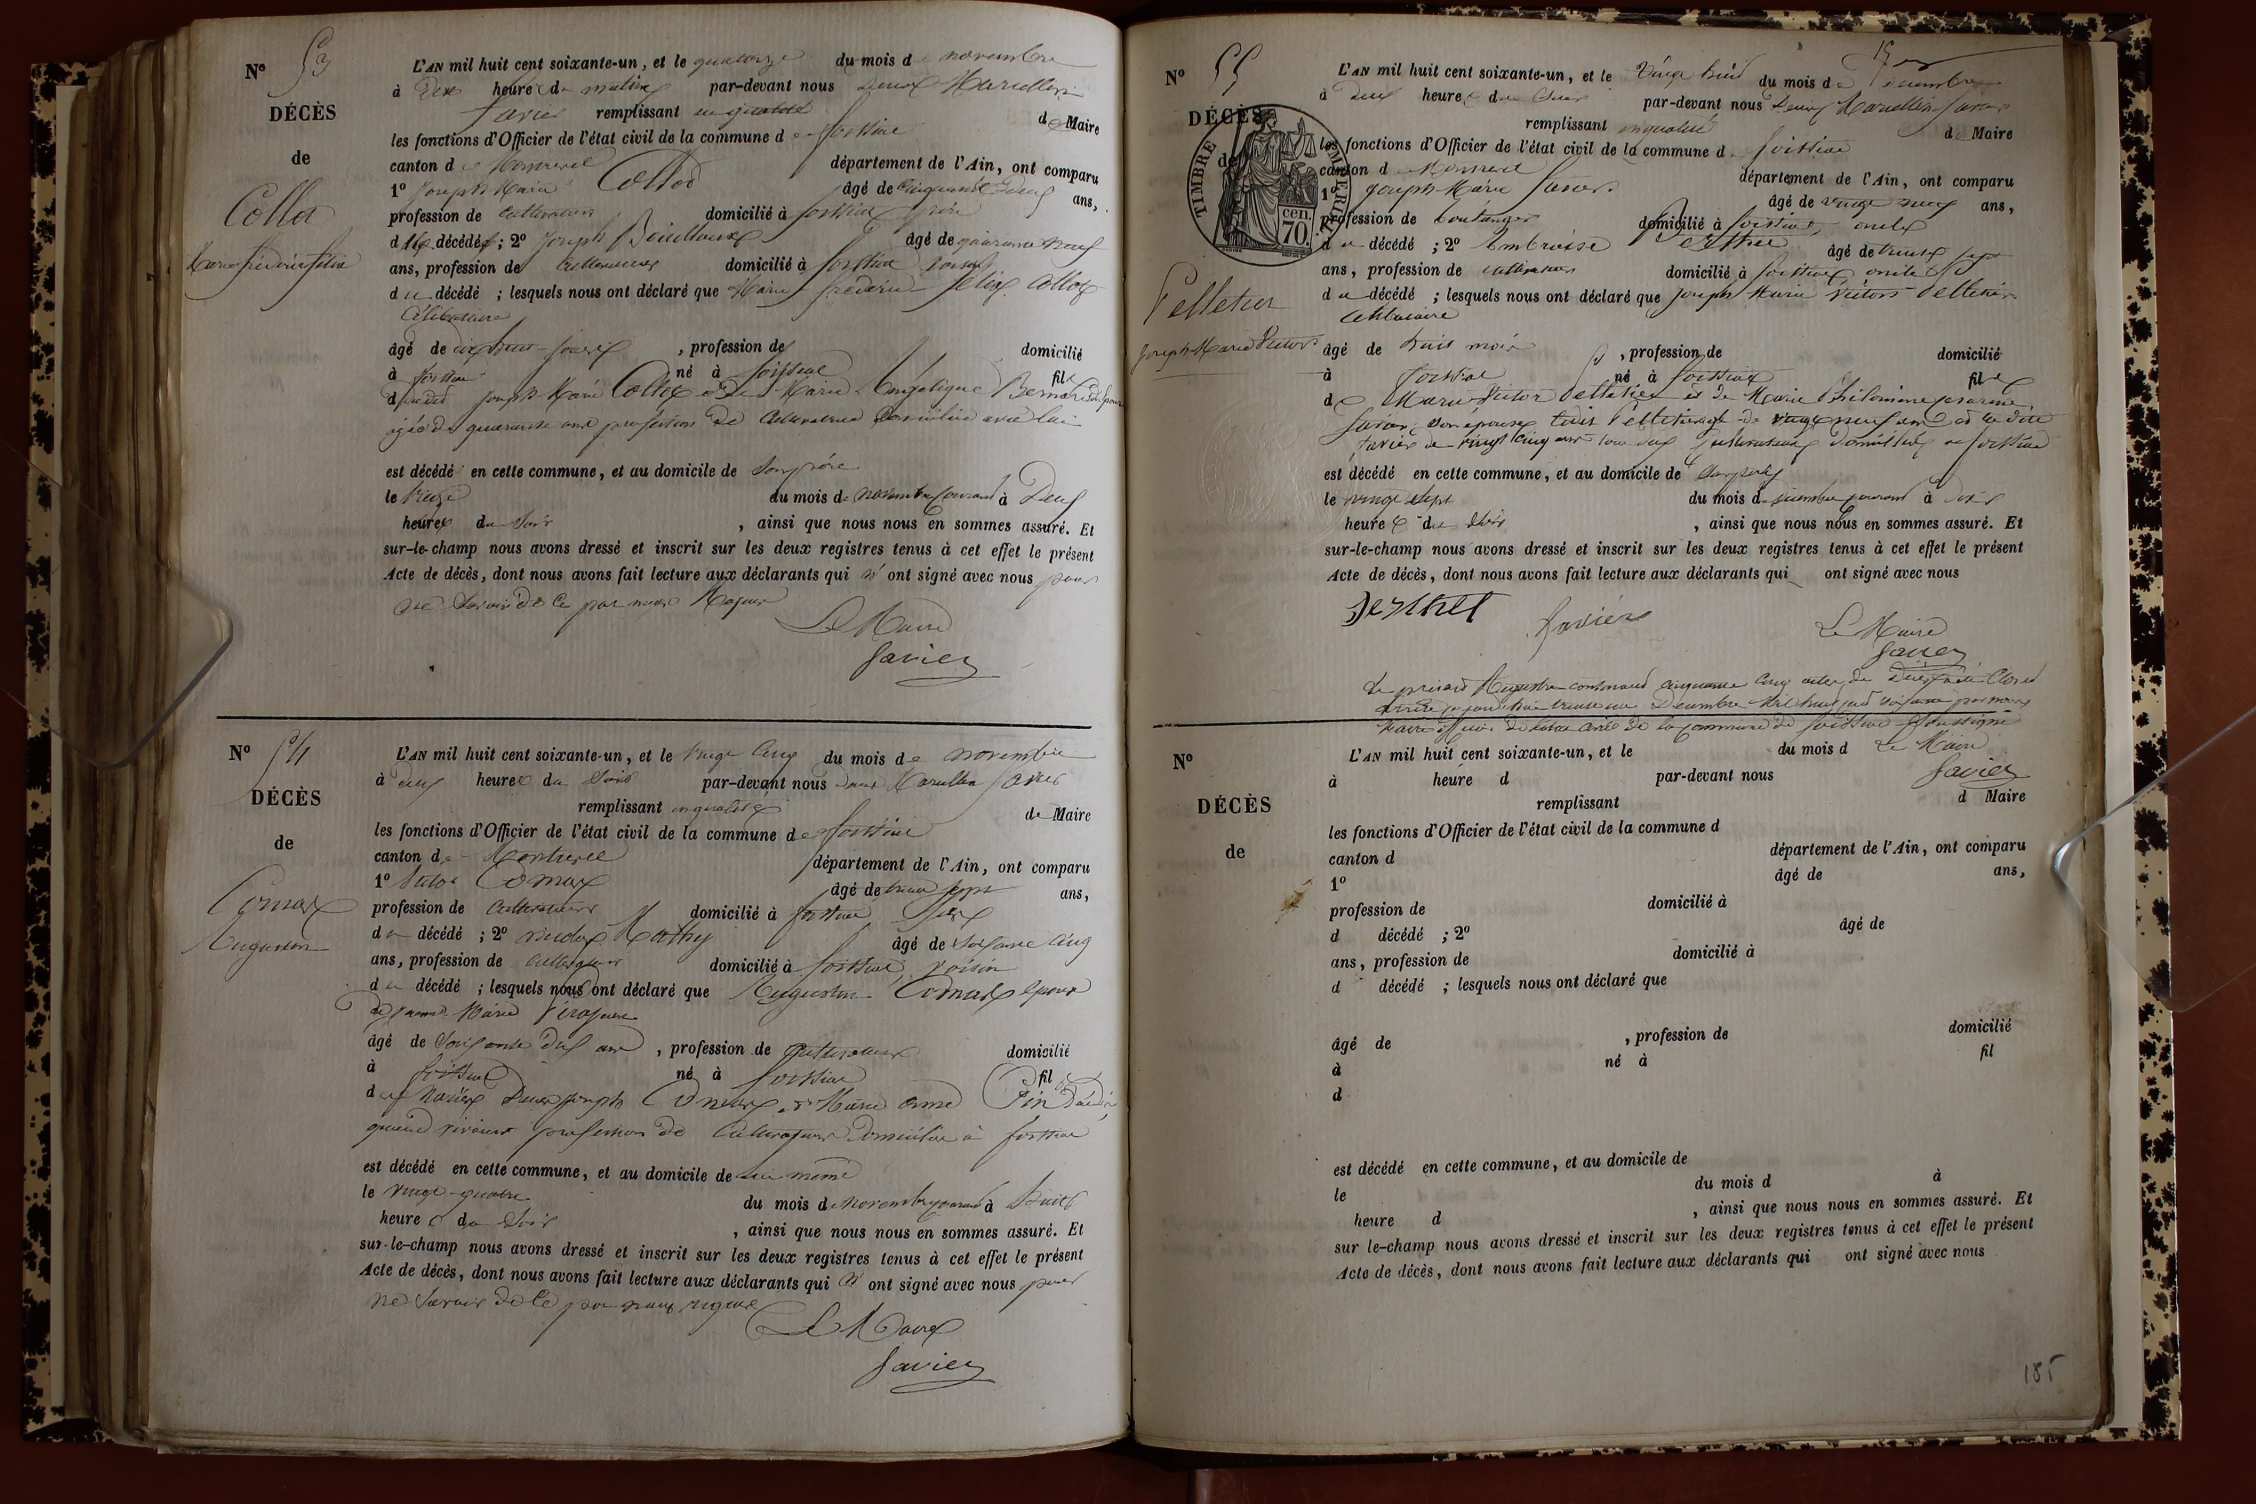 N° 53
DÉCÈS
de
Collot
L'AN mil huit cent soixante-un, et le quatorze du mois de novembre
à dix heure du matin par-devant nous Denis Marcellin
Favier remplissant en qualité de Maire
les fonctions d'Officier de l'état civil de la commune de foissiat
canton de Montrevel département de l'Ain, ont comparu
1° Joseph Marie Collot âgé de cinquante deux ans,
profession de cultivateur domicilié à foissiat père
d décédé; 2° Joseph âgé de quarante neuf
ans, profession de cultivateur domicilié à foissiat voisin
du décédé ; lesquels nous ont déclaré que Marie félix Collot
Célibataire
âgé de dix huit jours , profession de domicilié
à foissiat né à foissiat fil
d Joseph Marie Collot et de Marie Angélique
âgée de quarante ans profession de cultivatrice domiciliée avec lui
est décédé en cette commune, et au domicile de son père
le treize du mois de novembre courant à Deux
heures du soir , ainsi que nous nous en sommes assuré. Et
sur-le-champ nous avons dressé et inscrit sur les deux registres tenus à cet effet le présent
Acte de décès, dont nous avons fait lecture aux déclarants qui n' ont signé avec nous pour
ne savoir de ce par nous requis
Le Maire
Favier
N° 54
DÉCÈS
de
Augustin
L'AN mil huit cent soixante-un, et le vingt cinq du mois de novembre
à heure du soir par-devant nous Denis Marcellin Favier
remplissant en qualité de Maire
les fonctions d'Officier de l'état civil de la commune de foissiat
canton de Montrevel département de l'Ain, ont comparu
1° Victor âgé de trente sept ans,
profession de cultivateur domicilié à foissiat fils
du décédé ; 2° Mathy âgé de soixante cinq
ans, profession de cultivateur domicilié à foissiat voisin
du décédé ; lesquels nous ont déclaré que Augustin époux
de Marie
âgé de soixante dix ans , profession de cultivateur domicilié
à foissiat né à foissiat fil
d Joseph et Marie
quand vivaient profession de cultivateur domiciliés à foissiat
est décédé en cette commune, et au domicile de lui même
le vingt-quatre du mois de novembre courant à huit
heure du soir , ainsi que nous nous en sommes assuré. Et
sur-le-champ nous avons dressé et inscrit sur les deux registres tenus à cet effet le présent
Acte de décès, dont nous avons fait lecture aux déclarants qui n' ont signé avec nous pour
ne savoir de ce par nous requis
Le Maire
Favier
N° 55
DÉCÈS
de
TIMBRE IMPERIAL
cen.
70.
Pelletier
Joseph Marie Victor
L'AN mil huit cent soixante-un, et le vingt huit du mois de Décembre
à deux heures du soir par-devant nous Denis Marcellin Favier
remplissant en qualité de Maire
les fonctions d'Officier de l'état civil de la commune de foissiat
canton d Montrevel département de l'Ain, ont comparu
1° Joseph Marie Favier âgé de vingt neuf ans,
profession de boulanger domicilié à foissiat, oncle
du décédé ; 2° Ambroise Berthet âgé de trente sept
ans, profession de cultivateur domicilié à foissiat oncle
du décédé ; lesquels nous ont déclaré que Joseph Marie Victor Pelletier
célibataire
âgé de huit mois , profession de domicilié
à foissiat né à foissiat fil
de Marie Victor Pelletier et de Marie Philomène
Favier son épouse vingt neuf ans et la dite
Favier de vingt cinq ans tous deux cultivateurs domiciliés à foissiat
est décédé en cette commune, et au domicile de
le vingt sept du mois de décembre courant à
heure du soir , ainsi que nous nous en sommes assuré. Et
sur-le-champ nous avons dressé et inscrit sur les deux registres tenus à cet effet le présent
Acte de décès, dont nous avons fait lecture aux déclarants qui ont signé avec nous
Berthet Favier Le Maire
Favier
Le présent Registre contenant cinquante cinq actes de Décès a été Clos et
arrêté aujourd'hui trente un Décembre Mil huit cent soixante un par nous
Maire officier de l'état civil de la commune de foissiat soussigné
Le Maire
Favier
N°
DÉCÈS
de
L'AN mil huit cent soixante-un, et le du mois d
à heure d par-devant nous
remplissant d Maire
les fonctions d'Officier de l'état civil de la commune d
canton d département de l'Ain, ont comparu
1° âgé de ans,
profession de domicilié à
d décédé ; 2° âgé de
ans, profession de domicilié à
d décédé ; lesquels nous ont déclaré que
âgé de , profession de domicilié
à né à fil
d
est décédé en cette commune, et au domicile de
le du mois d à
heure d , ainsi que nous nous en sommes assuré. Et
sur le-champ nous avons dressé et inscrit sur les deux registres tenus à cet effet le présent
Acte de décès, dont nous avons fait lecture aux déclarants qui ont signé avec nous
185